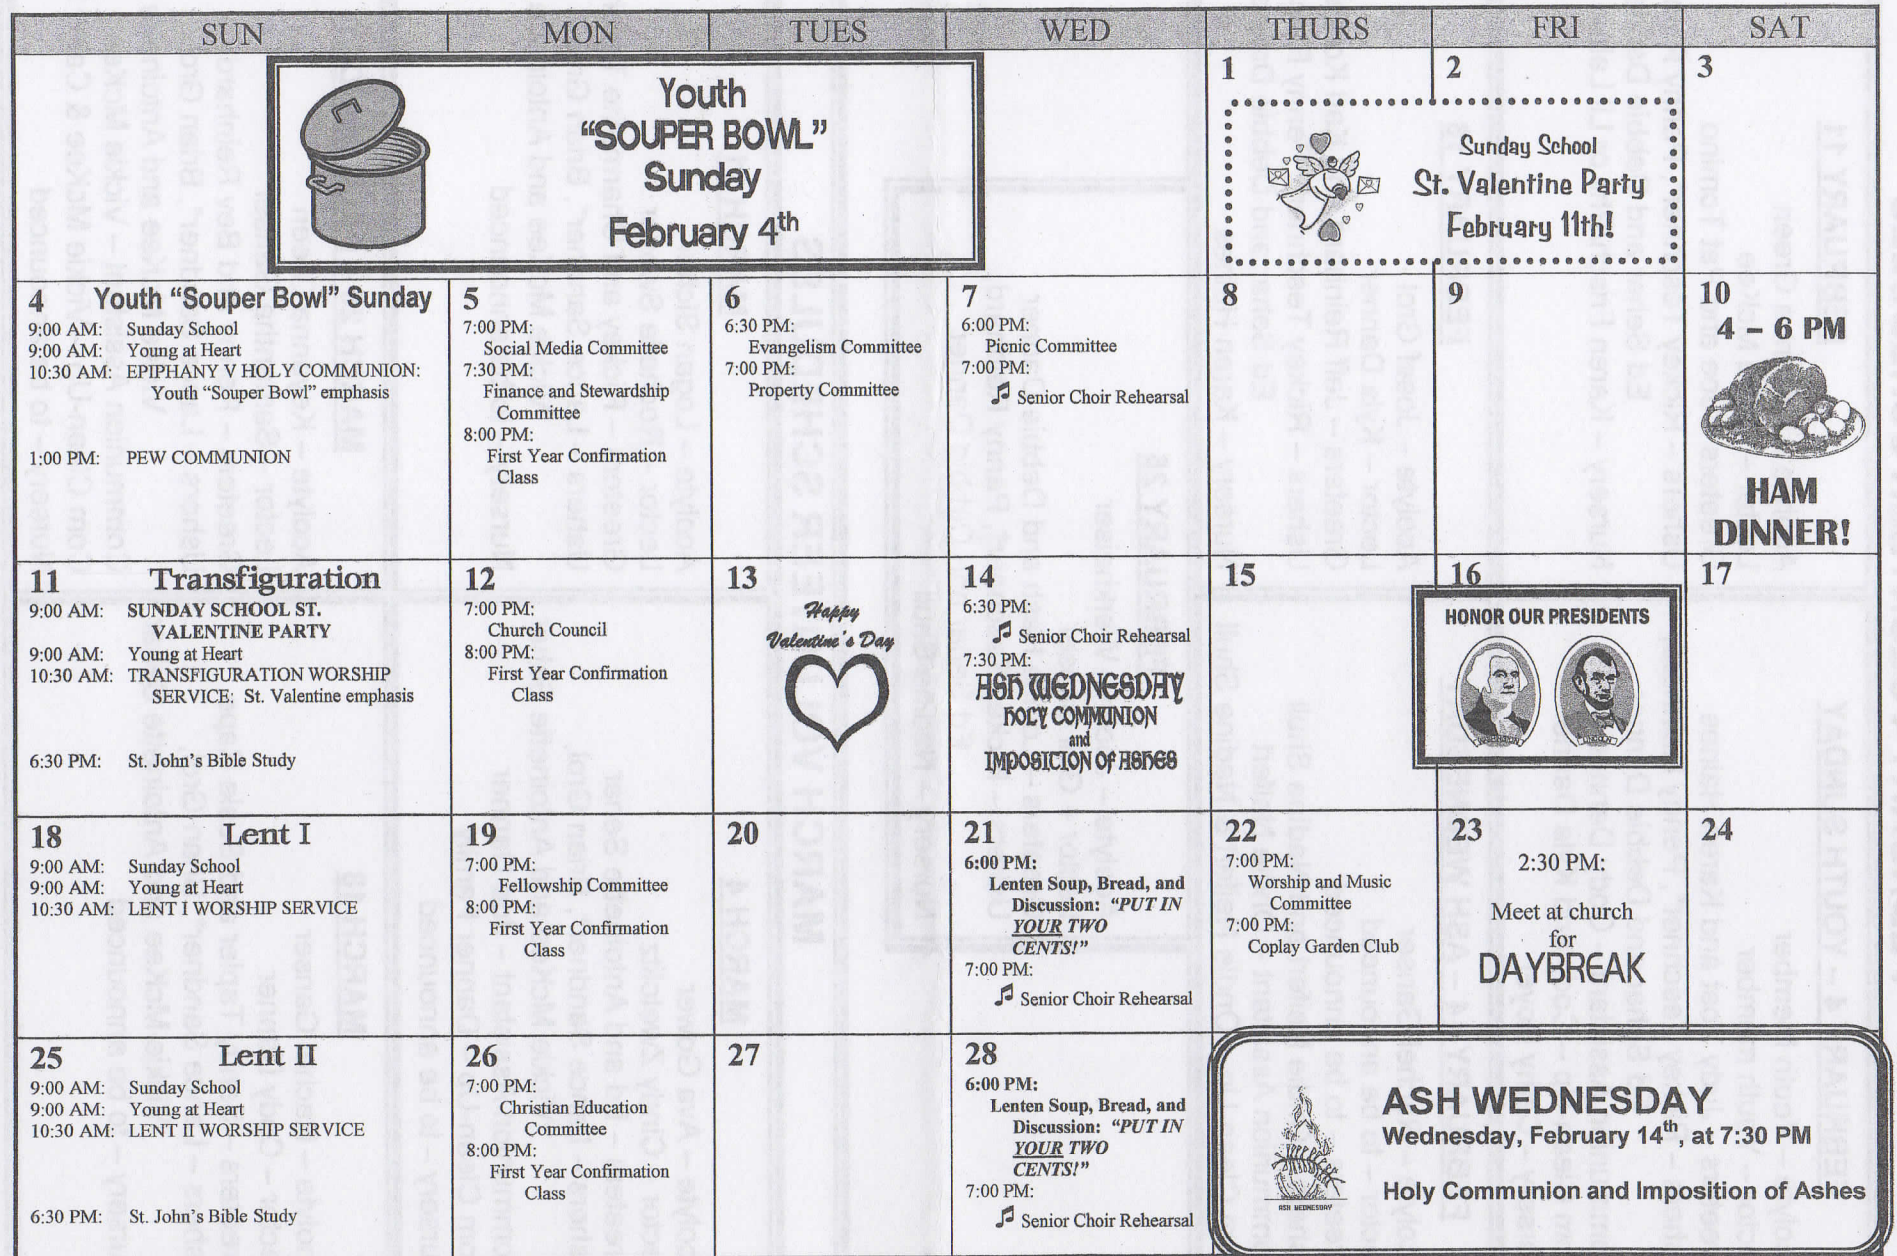 SUN MON TUES WED THURS FRI SAT
Youth
“SOUPER BOWL”
Sunday
February 4th
1
2
Sunday School
St. Valentine Party
February 11th!
3
4 Youth “Souper Bowl” Sunday
9:00 AM: Sunday School
9:00 AM: Young at Heart
10:30 AM: EPIPHANY V HOLY COMMUNION:
Youth “Souper Bowl” emphasis
1:00 PM: PEW COMMUNION
5
7:00 PM:
Social Media Committee
7:30 PM:
Finance and Stewardship
Committee
8:00 PM:
First Year Confirmation
Class
6
6:30 PM:
Evangelism Committee
7:00 PM:
Property Committee
7
6:00 PM:
Picnic Committee
7:00 PM:
♫ Senior Choir Rehearsal
8
9
10
4 – 6 PM
HAM
DINNER!
11 Transfiguration
9:00 AM: SUNDAY SCHOOL ST.
VALENTINE PARTY
9:00 AM: Young at Heart
10:30 AM: TRANSFIGURATION WORSHIP
SERVICE: St. Valentine emphasis
6:30 PM: St. John’s Bible Study
12
7:00 PM:
Church Council
8:00 PM:
First Year Confirmation
Class
13
Happy
Valentine’s Day
14
6:30 PM:
♫ Senior Choir Rehearsal
7:30 PM:
ASH WEDNESDAY
HOLY COMMUNION
and
IMPOSICION OF ASHES
15
16
HONOR OUR PRESIDENTS
WASHINGTON LINCOLN
17
18 Lent I
9:00 AM: Sunday School
9:00 AM: Young at Heart
10:30 AM: LENT I WORSHIP SERVICE
19
7:00 PM:
Fellowship Committee
8:00 PM:
First Year Confirmation
Class
20
21
6:00 PM:
Lenten Soup, Bread, and
Discussion: “PUT IN
YOUR TWO
CENTS!”
7:00 PM:
♫ Senior Choir Rehearsal
22
7:00 PM:
Worship and Music
Committee
7:00 PM:
Coplay Garden Club
23
2:30 PM:
Meet at church
for
DAYBREAK
24
25 Lent II
9:00 AM: Sunday School
9:00 AM: Young at Heart
10:30 AM: LENT II WORSHIP SERVICE
6:30 PM: St. John’s Bible Study
26
7:00 PM:
Christian Education
Committee
8:00 PM:
First Year Confirmation
Class
27
28
6:00 PM:
Lenten Soup, Bread, and
Discussion: “PUT IN
YOUR TWO
CENTS!”
7:00 PM:
♫ Senior Choir Rehearsal
ASH WEDNESDAY
ASH WEDNESDAY
Wednesday, February 14th, at 7:30 PM
Holy Communion and Imposition of Ashes